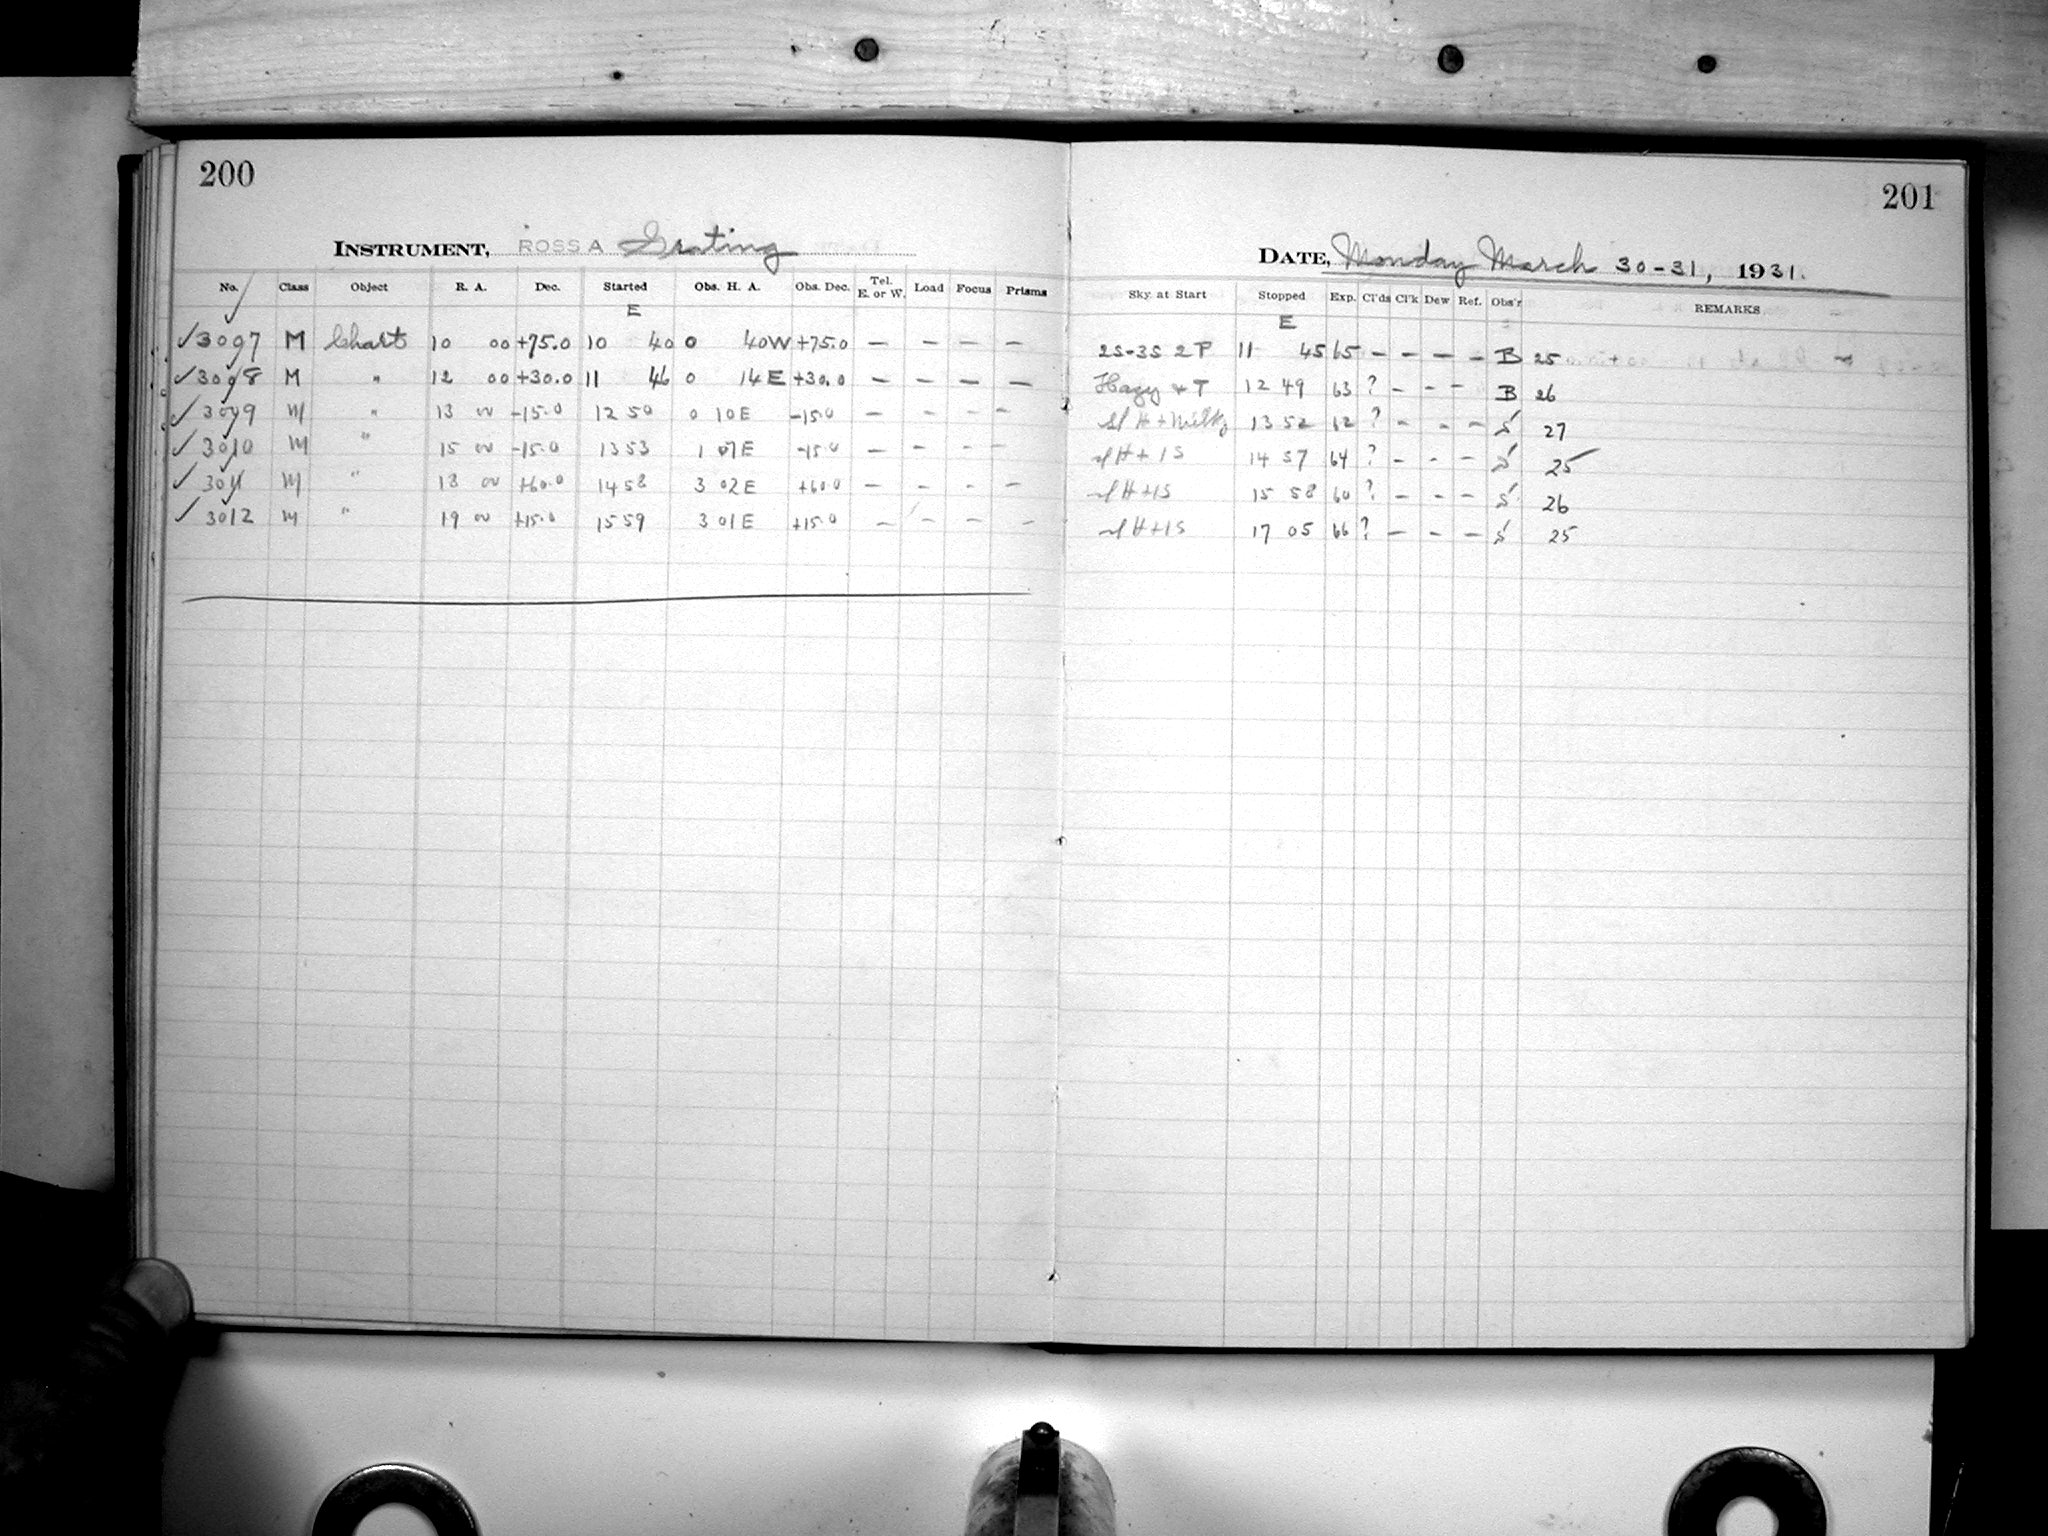 200
201
INSTRUMENT, ROSS A Grating
DATE, Monday March 30-31, 1931.
No. Class Object R. A. Dec. Started Obs. H. A. Obs. Dec. Tel. E. or W. Load Focus Prisms Sky at Start Stopped Exp. Cl'ds Cl'k Dew Ref. Obs'r REMARKS
E E
✓ M Chart 10 00 +75.0 10 40 0 40W +75.0 — — — — 2S-3S 2P 11 45 65 — — — — B 25
✓ M " 12 00 +30.0 11 46 0 14E +30.0 — — — — Hazy + T 12 49 63 ? — — — B 26
✓ M " 13 00 -15.0 12 50 0 10E -15.0 — — — — sl H + Milky 13 52 62 ? — — — S 27
✓ M " 15 00 -15.0 13 53 1 07E -15.0 — — — — sl H + 1S 14 57 64 ? — — — S 25
✓ M " 18 00 +60.0 14 58 3 02E +60.0 — — — — sl H+1S 15 58 60 ? — — — S 26
✓ 3012 M " 19 00 +15.0 15 59 3 01E +15.0 — — — — sl H+1S 17 05 66 ? — — — S 25